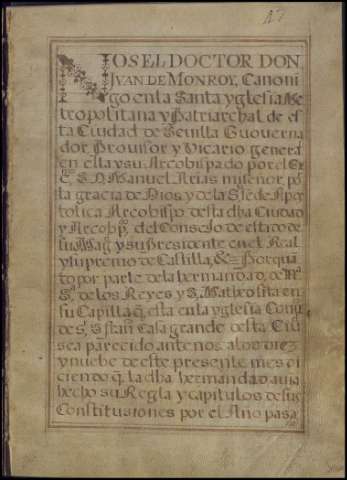 NOS EL DOCTOR DON
JVAN DE MONROY, Canoni
go en la Santa yglesia Me
tropolitana y Patriarchal de es
ta Ciudad de Sevilla Guouerna
dor Prouisor y Vicario general
en ella y su Arcobispado por el Ex
S. D. Manuel Arias mi señor por
la gracia de Dios y de la S. Sede Apos
tolica Arcobispo desta dha Ciudad
y Arcobp. del Consejo de estado de
su Mag. y su Presidente en el Real
y supremo de Castilla, &= Por quā
to por parte de la hermandad de Nrā
Sā de los Reyes y S. Matheo sita en
su Capilla q. esta en la yglesia Conu.
de s. Fran Casa grande desta Ciu
se a parecido ante nos a los diez
y nuebe de este presente mes di
ciendo q. la dha hermandad auia
hecho su Regla y capitulos de sus
Constitusiones por el Año pasa